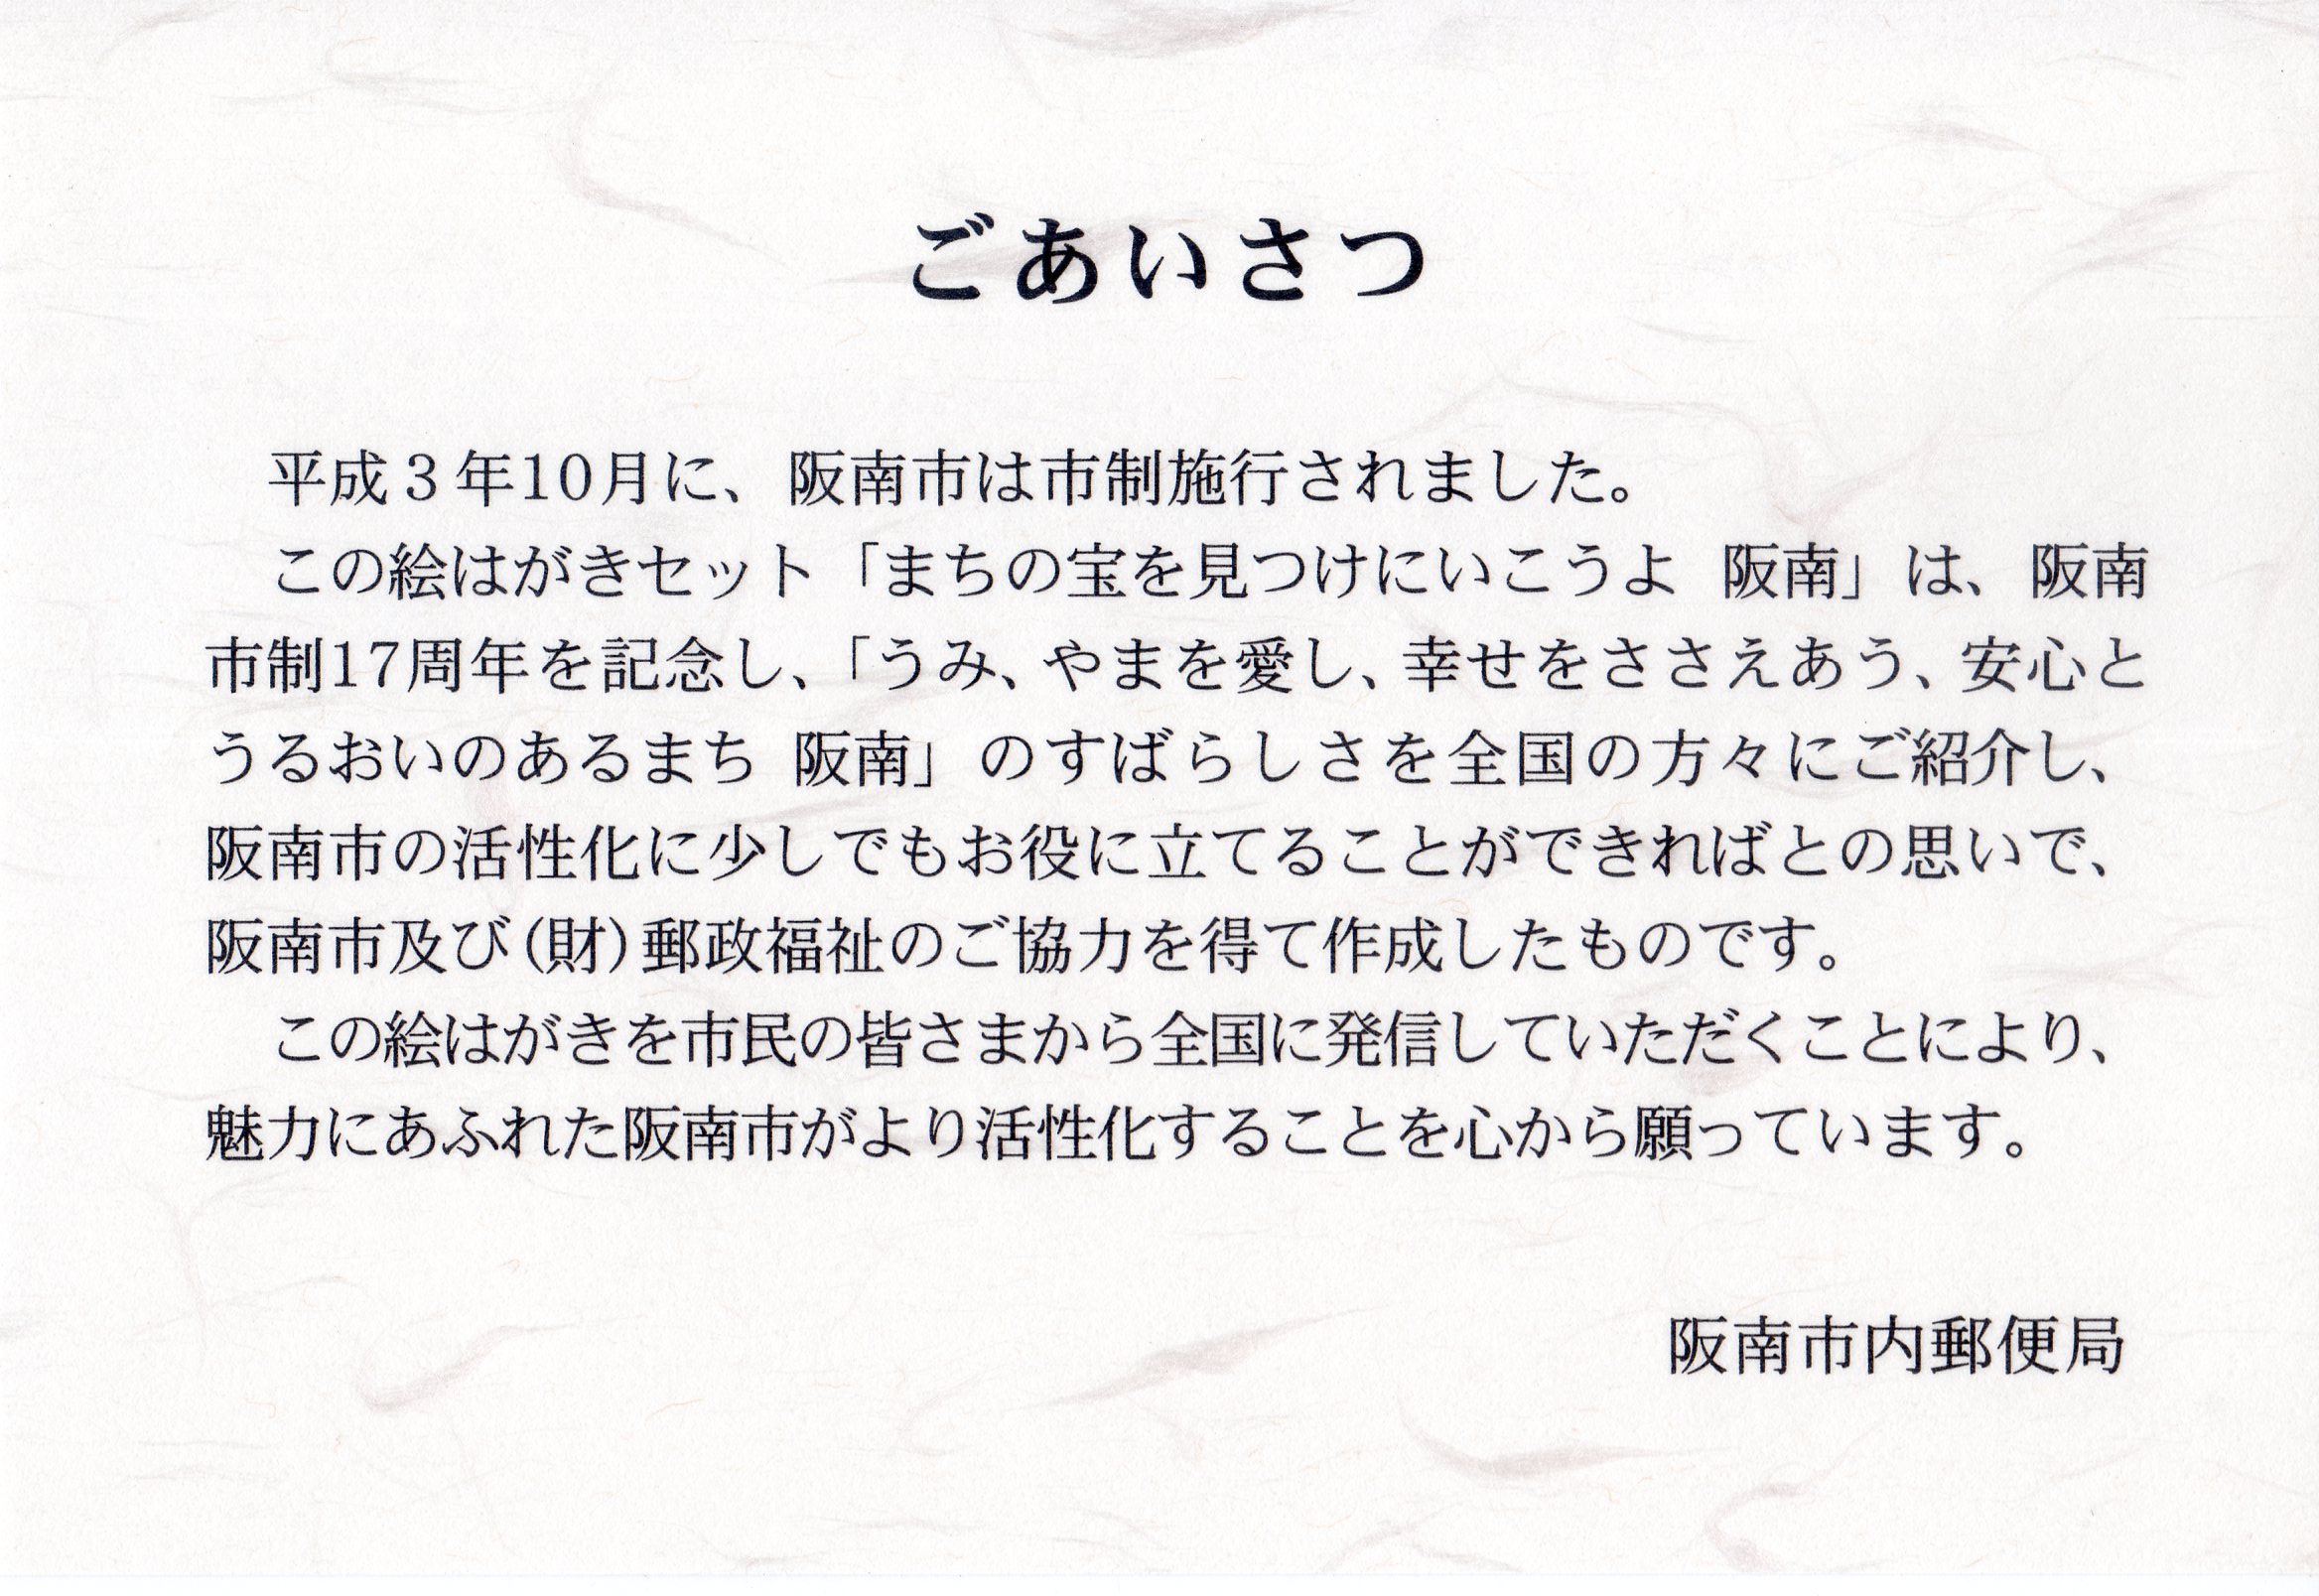 ごあいさつ
平成３年10月に、阪南市は市制施行されました。
この絵はがきセット「まちの宝を見つけにいこうよ 阪南」は、阪南
市制17周年を記念し、「うみ、やまを愛し、幸せをささえあう、安心と
うるおいのあるまち 阪南」のすばらしさを全国の方々にご紹介し、
阪南市の活性化に少しでもお役に立てることができればとの思いで、
阪南市及び(財)郵政福祉のご協力を得て作成したものです。
この絵はがきを市民の皆さまから全国に発信していただくことにより、
魅力にあふれた阪南市がより活性化することを心から願っています。
阪南市内郵便局